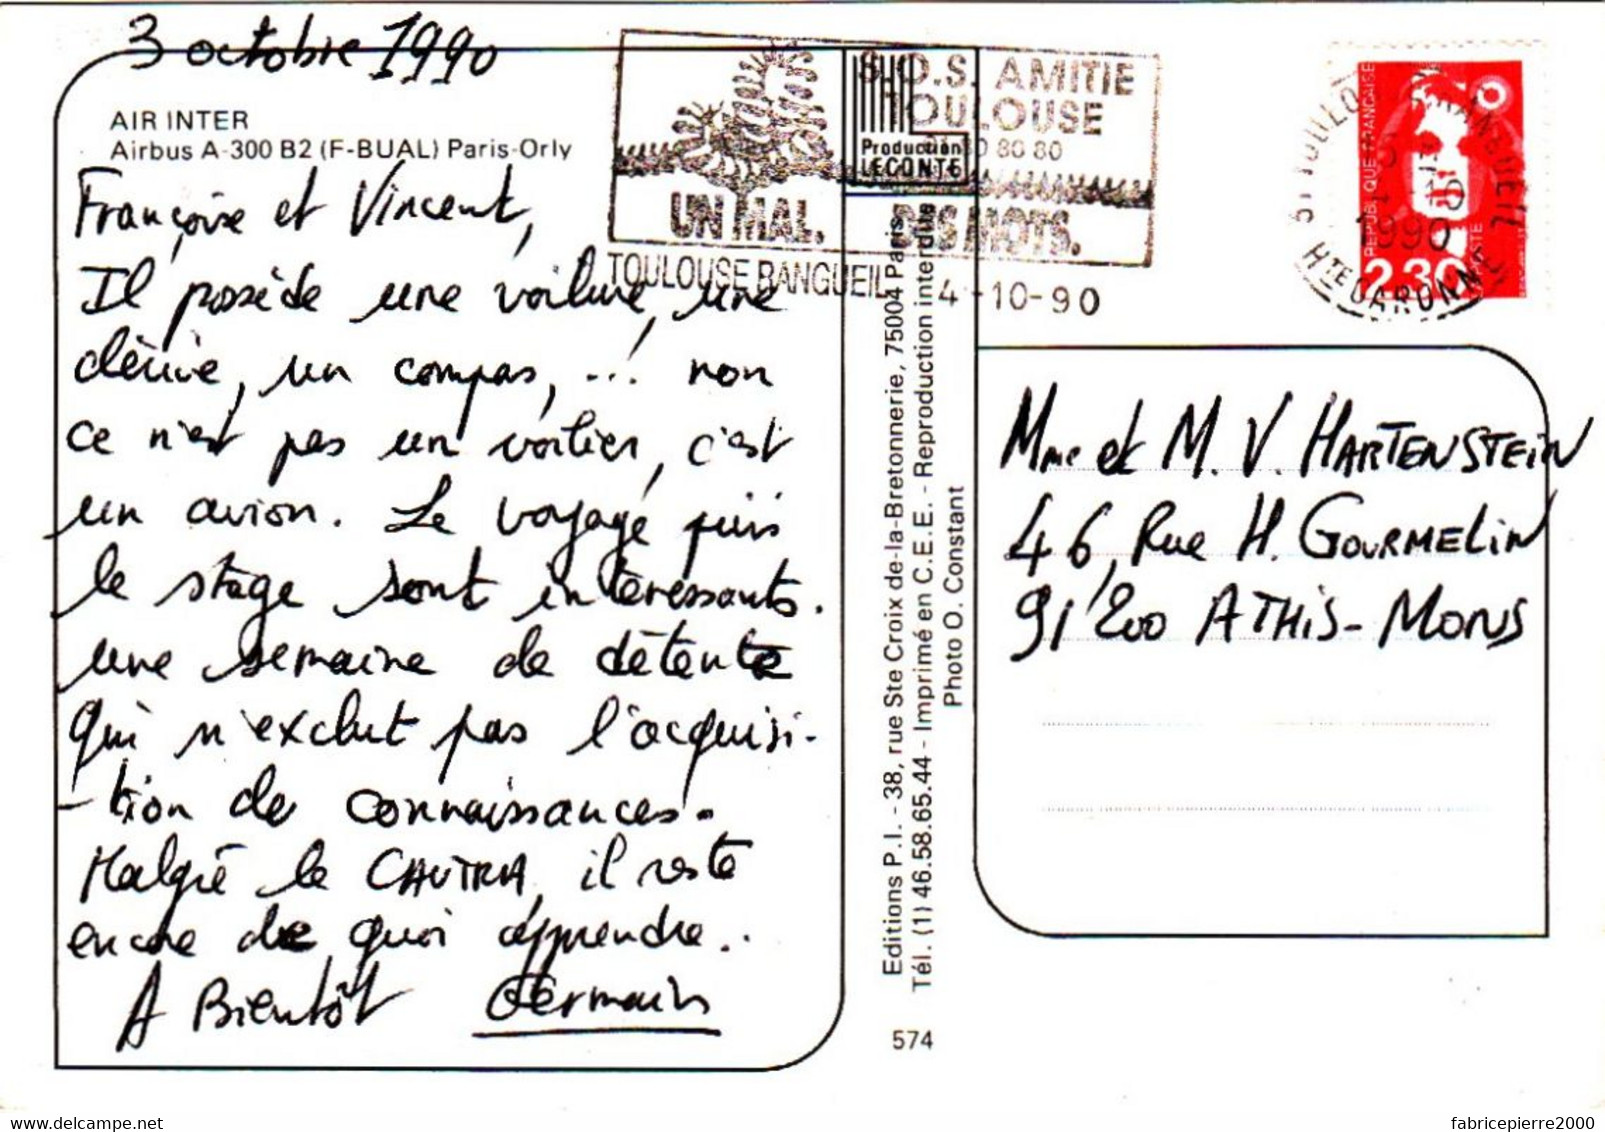 3 octobre 1990
AIR INTER
Airbus A-300 B2 (F-BUAL) Paris-Orly
Françoise et Vincent,
Il possède une voilure, une
dérive, un compas, ... non
ce n'est pas un voilier, c'est
un avion. Le voyage puis
le stage sont intéressants.
une semaine de détente
qui n'exclut pas l'acquisi-
-tion de connaissances.
Malgré le CAUTRA, il reste
encore de quoi apprendre..
A Bientôt Germain
S.O.S. AMITIE
TOULOUSE
80 80 80
UN MAL. DES MOTS.
TOULOUSE RANGUEIL 4-10-90
Production
LECONTE
Editions P.I. - 38, rue Ste Croix de-la-Bretonnerie, 75004 Paris
Tél. (1) 46.58.65.44 - Imprimé en C.E.E. - Reproduction interdite
Photo O. Constant
574
31 TOULOUSE RANGUEIL
1990
HTE GARONNE
REPUBLIQUE FRANCAISE
2,30
Mme et M. V. HARTENSTEIN
46, Rue H. GOURMELIN
91200 ATHIS-MONS
fabricepierre2000